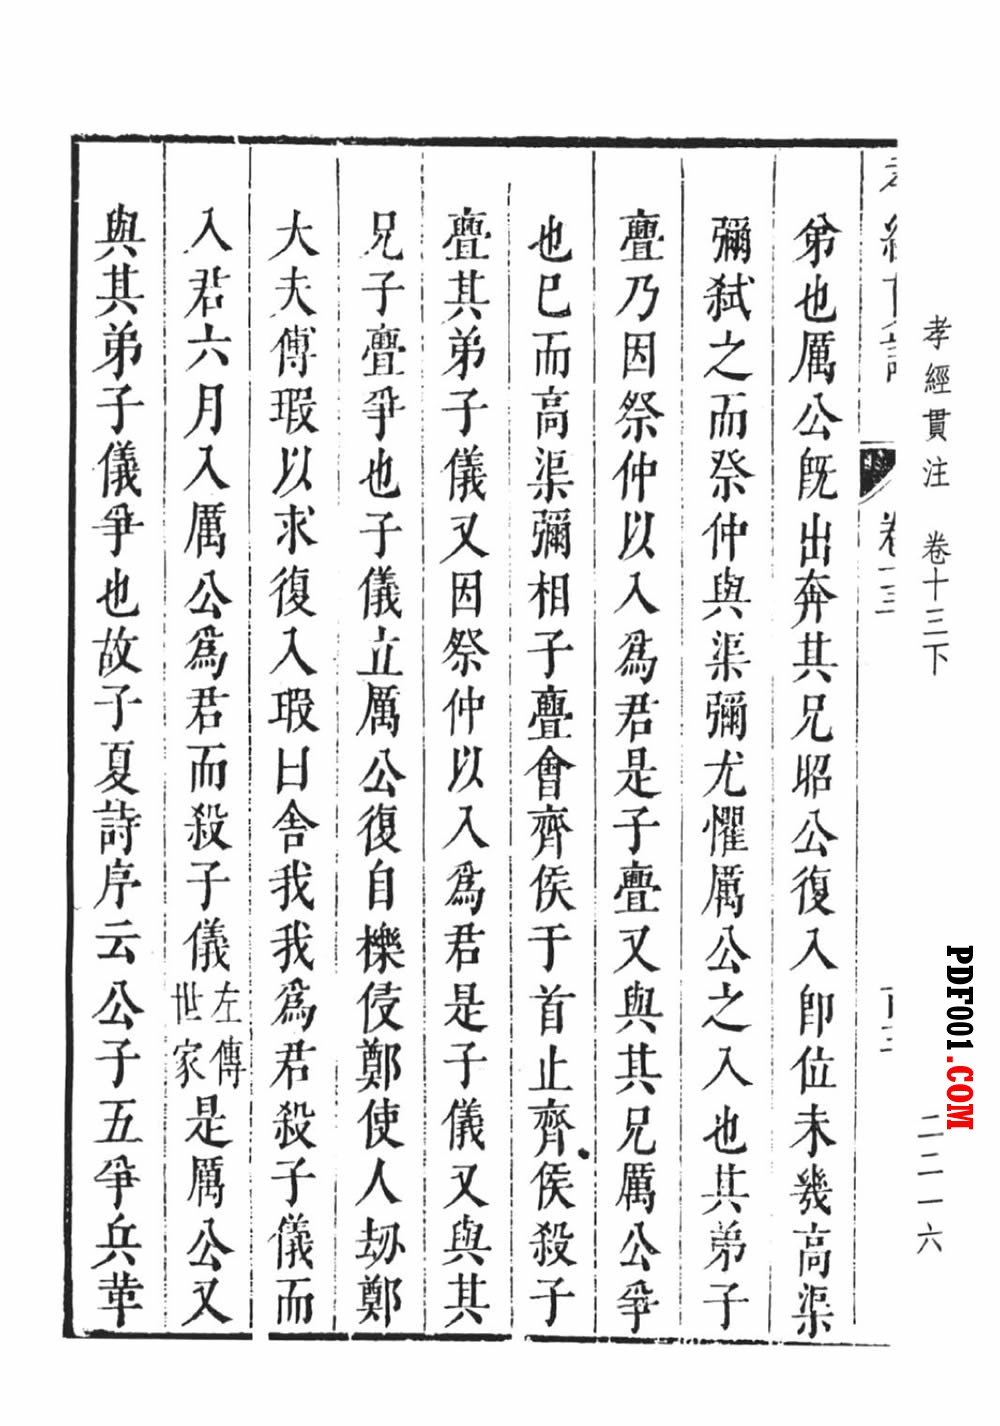 孝經貫注 卷十三下
二二一六
PDF001.COM
卷十三
弟也厲公旣出奔其兄昭公復入卽位未幾高渠
彌弑之而祭仲與渠彌尤懼厲公之入也其弟子
亹乃因祭仲以入爲君是子亹又與其兄厲公爭
也巳而高渠彌相子亹會齊侯于首止齊侯殺子
亹其弟子儀又因祭仲以入爲君是子儀又與其
兄子亹爭也子儀立厲公復自櫟侵鄭使人劫鄭
大夫傅瑕以求復入瑕曰舍我我爲君殺子儀而
入君六月入厲公爲君而殺子儀左傳世家是厲公又
與其弟子儀爭也故子夏詩序云公子五爭兵革